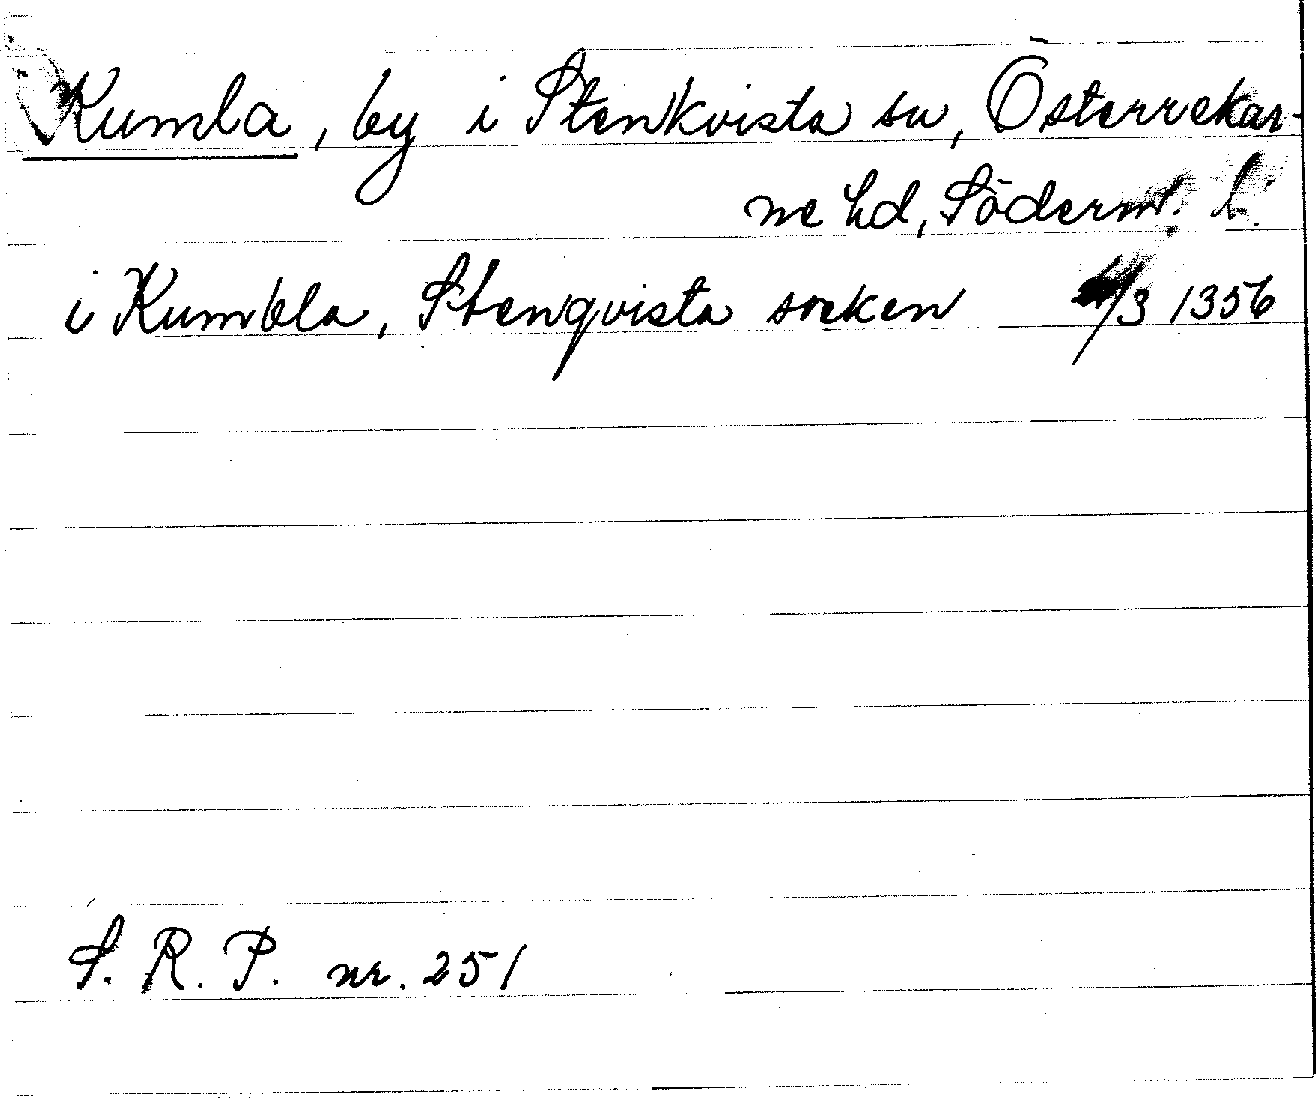 Kumla, by i Stenkvista sn, Österrekar-
ne hd, Söderm. l.
i Kumbla, Stenqvista soeken /3 1356
S. R. P. nr. 251